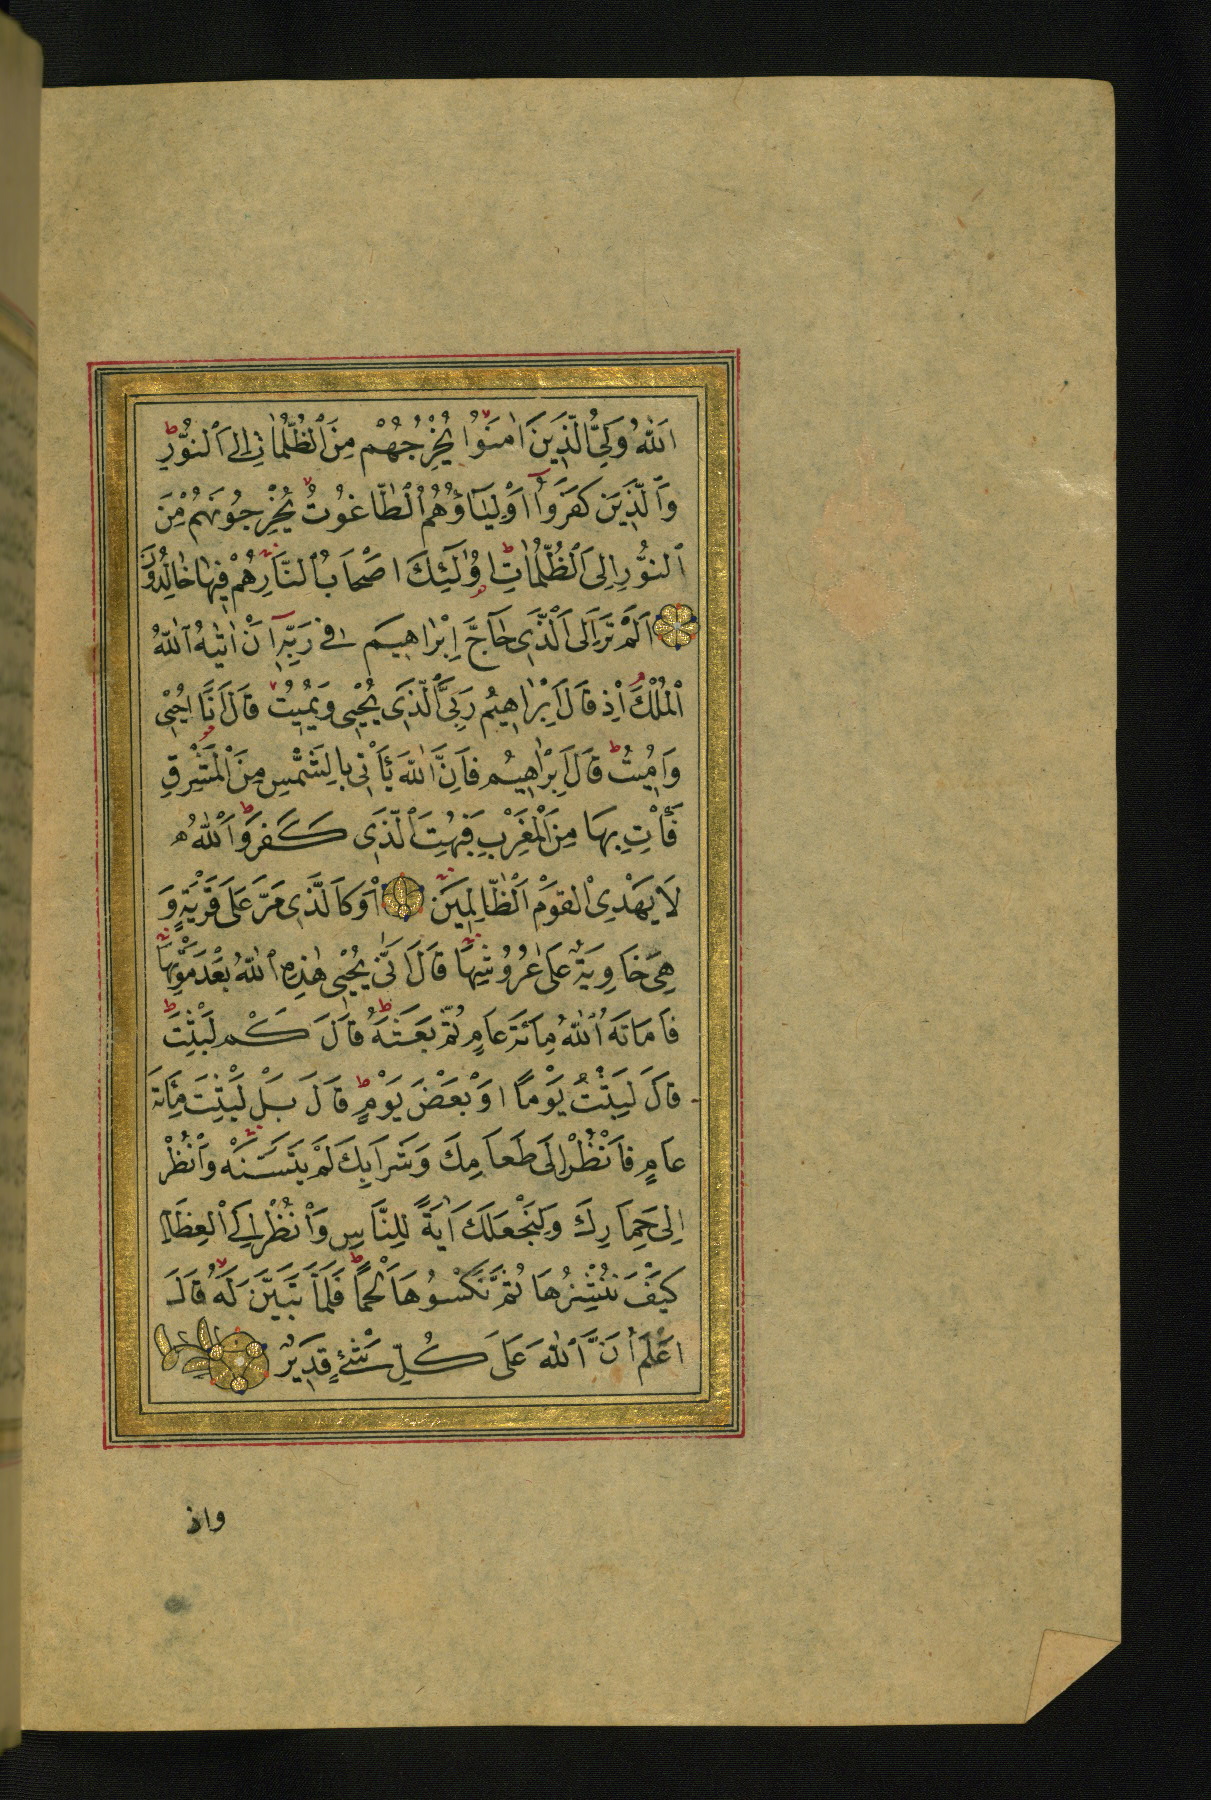 اَللّٰهُ وَلِيُّ الَّذِينَ اٰمَنُوا يُخْرِجُهُمْ مِنَ الظُّلُمَاتِ اِلَى النُّورِ
وَالَّذِينَ كَفَرُوا اَوْلِيَاؤُهُمُ الطَّاغُوتُ يُخْرِجُونَهُمْ مِنَ
النُّورِ اِلَى الظُّلُمَاتِ اُولٰئِكَ اَصْحَابُ النَّارِ هُمْ فِيهَا خَالِدُونَ
اَلَمْ تَرَ اِلَى الَّذِى حَاجَّ اِبْرٰاهِيمَ فِى رَبِّهِ اَنْ اٰتٰيهُ اللّٰهُ
الْمُلْكَ اِذْ قَالَ اِبْرٰاهِيمُ رَبِّىَ الَّذِى يُحْيِى وَيُمِيتُ قَالَ اَنَا اُحْيِى
وَاُمِيتُ قَالَ اِبْرٰاهِيمُ فَاِنَّ اللّٰهَ يَأْتِى بِالشَّمْسِ مِنَ الْمَشْرِقِ
فَأْتِ بِهَا مِنَ الْمَغْرِبِ فَبُهِتَ الَّذِى كَفَرَ وَاللّٰهُ
لَا يَهْدِى الْقَوْمَ الظَّالِمِينَ اَوْ كَالَّذِى مَرَّ عَلَى قَرْيَةٍ وَ
هِىَ خَاوِيَةٌ عَلَى عُرُوشِهَا قَالَ اَنّٰى يُحْيِى هٰذِهِ اللّٰهُ بَعْدَ مَوْتِهَا
فَاَمَاتَهُ اللّٰهُ مِائَةَ عَامٍ ثُمَّ بَعَثَهُ قَالَ كَمْ لَبِثْتَ
قَالَ لَبِثْتُ يَوْمًا اَوْ بَعْضَ يَوْمٍ قَالَ بَلْ لَبِثْتَ مِائَةَ
عَامٍ فَانْظُرْ اِلَى طَعَامِكَ وَشَرَابِكَ لَمْ يَتَسَنَّهْ وَانْظُرْ
اِلَى حِمَارِكَ وَلِنَجْعَلَكَ اٰيَةً لِلنَّاسِ وَانْظُرْ اِلَى الْعِظَامِ
كَيْفَ نُنْشِزُهَا ثُمَّ نَكْسُوهَا لَحْمًا فَلَمَّا تَبَيَّنَ لَهُ قَالَ
اَعْلَمُ اَنَّ اللّٰهَ عَلَى كُلِّ شَيْءٍ قَدِيرٌ
واذ